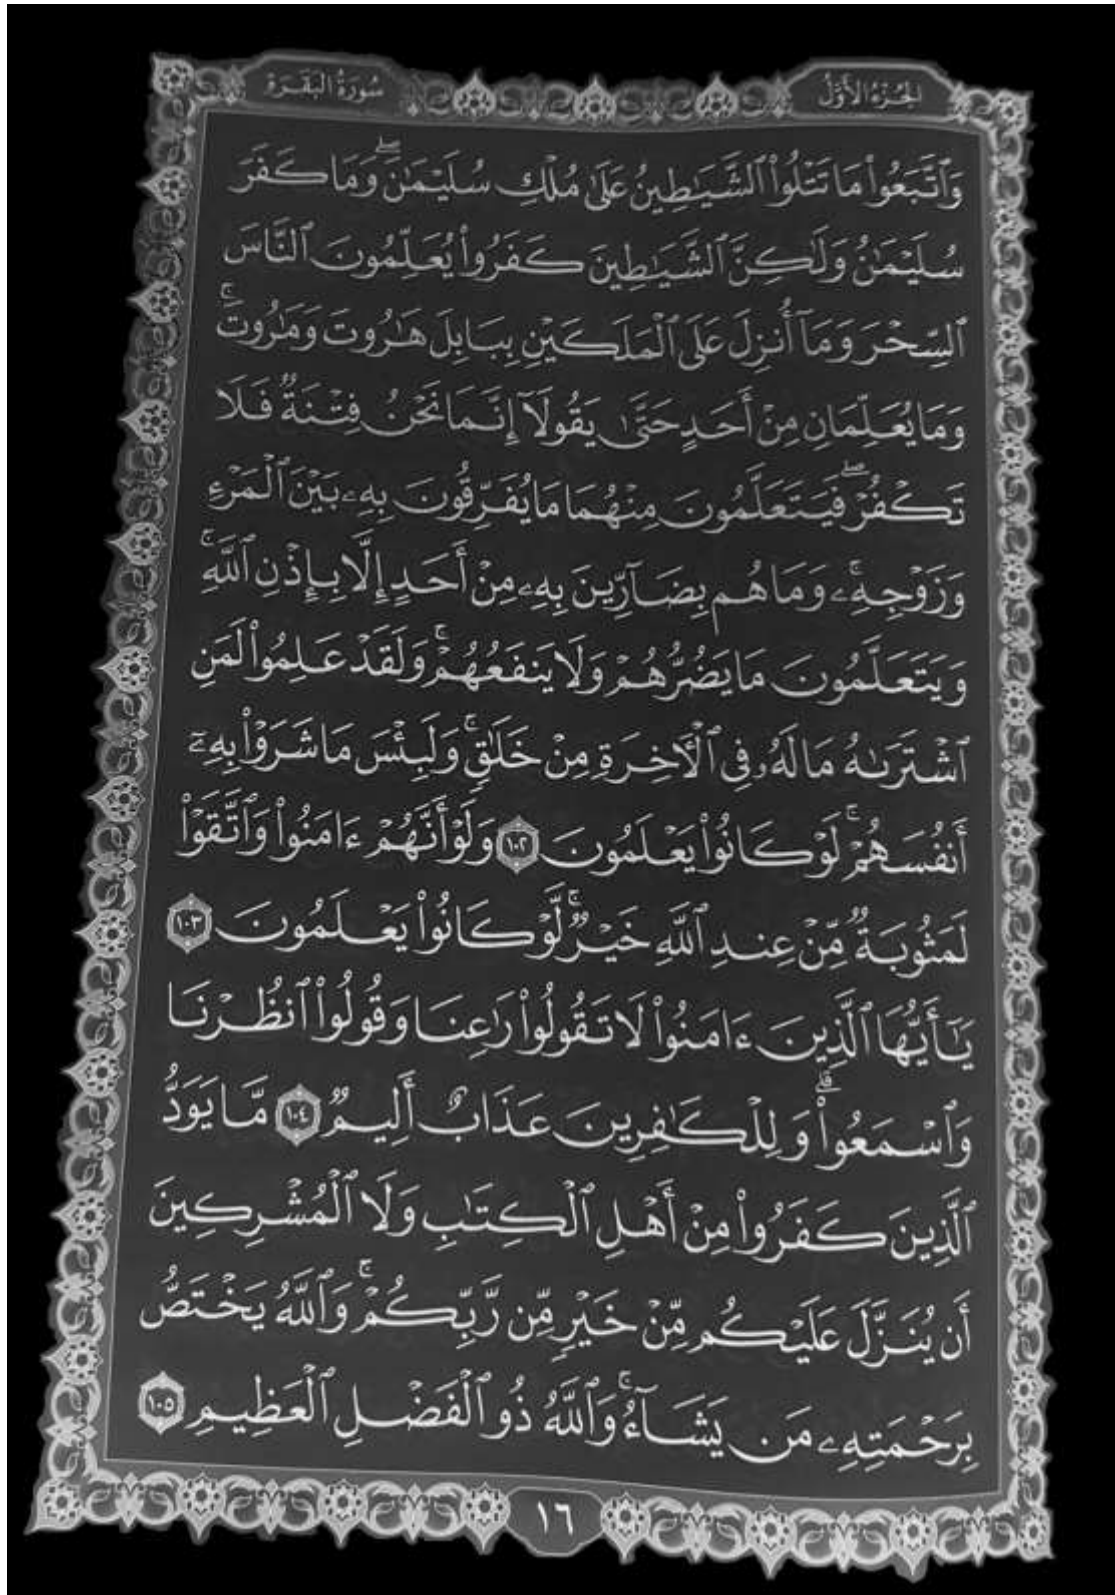 الجزء الأول
سورة البقرة
وَٱتَّبَعُوا۟ مَا تَتْلُوا۟ ٱلشَّيَـٰطِينُ عَلَىٰ مُلْكِ سُلَيْمَـٰنَ ۖ وَمَا كَفَرَ
سُلَيْمَـٰنُ وَلَـٰكِنَّ ٱلشَّيَـٰطِينَ كَفَرُوا۟ يُعَلِّمُونَ ٱلنَّاسَ
ٱلسِّحْرَ وَمَآ أُنزِلَ عَلَى ٱلْمَلَكَيْنِ بِبَابِلَ هَـٰرُوتَ وَمَـٰرُوتَ ۚ
وَمَا يُعَلِّمَانِ مِنْ أَحَدٍ حَتَّىٰ يَقُولَآ إِنَّمَا نَحْنُ فِتْنَةٌ فَلَا
تَكْفُرْ ۖ فَيَتَعَلَّمُونَ مِنْهُمَا مَا يُفَرِّقُونَ بِهِۦ بَيْنَ ٱلْمَرْءِ
وَزَوْجِهِۦ ۚ وَمَا هُم بِضَآرِّينَ بِهِۦ مِنْ أَحَدٍ إِلَّا بِإِذْنِ ٱللَّهِ ۚ
وَيَتَعَلَّمُونَ مَا يَضُرُّهُمْ وَلَا يَنفَعُهُمْ ۚ وَلَقَدْ عَلِمُوا۟ لَمَنِ
ٱشْتَرَىٰهُ مَا لَهُۥ فِى ٱلْـَٔاخِرَةِ مِنْ خَلَـٰقٍ ۚ وَلَبِئْسَ مَا شَرَوْا۟ بِهِۦٓ
أَنفُسَهُمْ ۚ لَوْ كَانُوا۟ يَعْلَمُونَ ١٠٢ وَلَوْ أَنَّهُمْ ءَامَنُوا۟ وَٱتَّقَوْا۟
لَمَثُوبَةٌ مِّنْ عِندِ ٱللَّهِ خَيْرٌ ۖ لَّوْ كَانُوا۟ يَعْلَمُونَ ١٠٣
يَـٰٓأَيُّهَا ٱلَّذِينَ ءَامَنُوا۟ لَا تَقُولُوا۟ رَٰعِنَا وَقُولُوا۟ ٱنظُرْنَا
وَٱسْمَعُوا۟ ۗ وَلِلْكَـٰفِرِينَ عَذَابٌ أَلِيمٌ ١٠٤ مَّا يَوَدُّ
ٱلَّذِينَ كَفَرُوا۟ مِنْ أَهْلِ ٱلْكِتَـٰبِ وَلَا ٱلْمُشْرِكِينَ
أَن يُنَزَّلَ عَلَيْكُم مِّنْ خَيْرٍ مِّن رَّبِّكُمْ ۚ وَٱللَّهُ يَخْتَصُّ
بِرَحْمَتِهِۦ مَن يَشَآءُ ۚ وَٱللَّهُ ذُو ٱلْفَضْلِ ٱلْعَظِيمِ ١٠٥
١٦